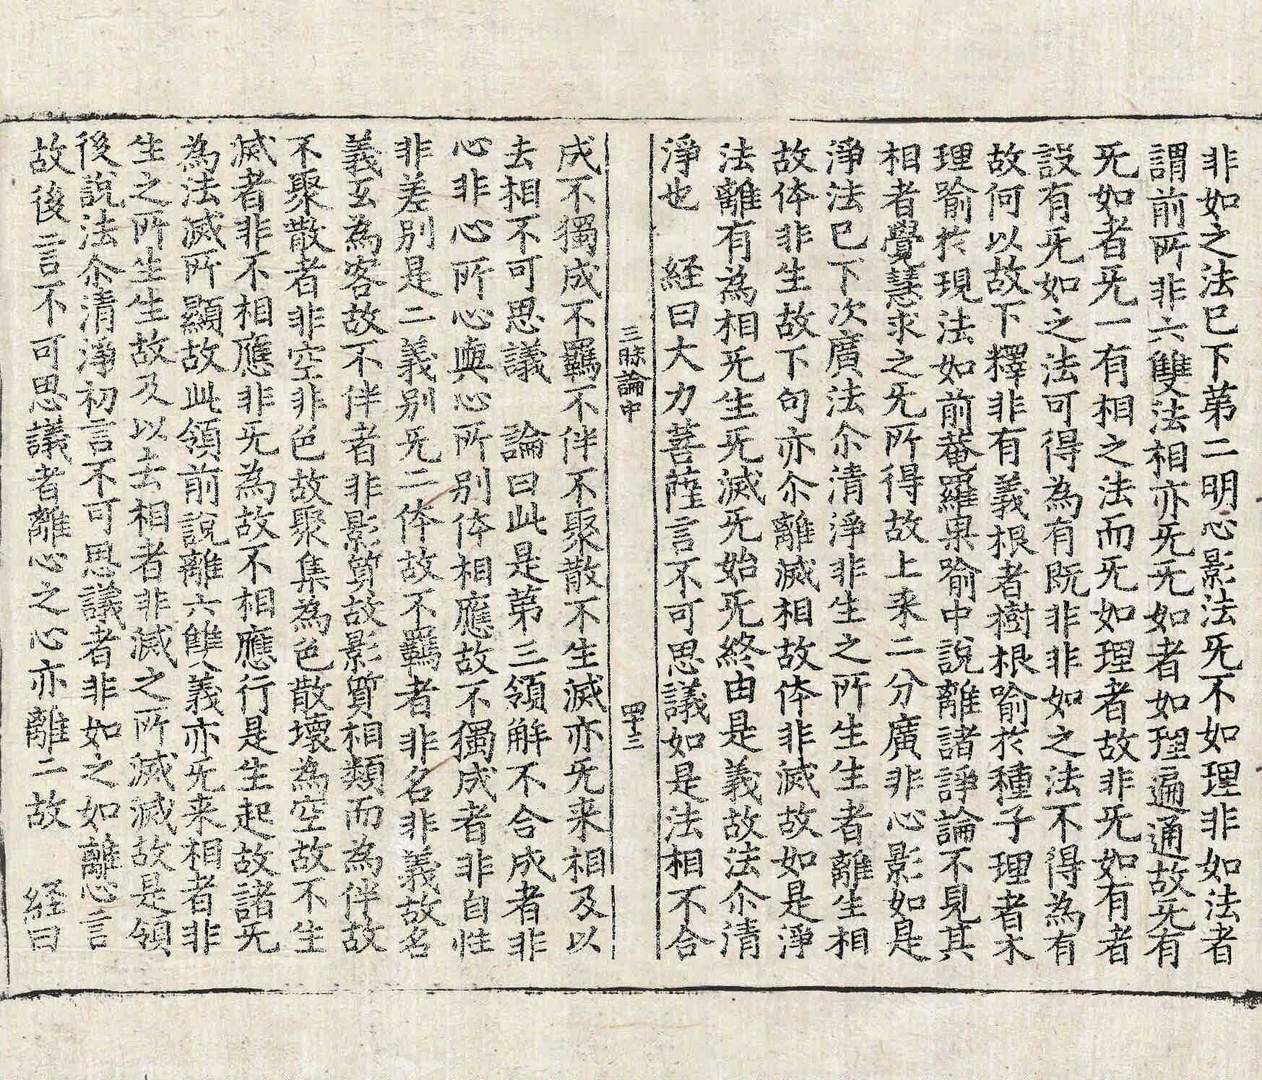 非如之法已下第二明心影法旡不如理非如法者
謂前所非六雙法相亦旡旡如者如理遍通故旡有
旡如者旡一有相之法而旡如理者故非旡如有者
設有旡如之法可得為有既非非如之法不得為有
故何以故下釋非有義根者樹根喻於種子理者木
理喻於現法如前菴羅果喻中說離諸諍論不見其
相者覺慧求之旡所得故上来二分廣非心影如是
淨法已下次廣法尒清淨非生之所生生者離生相
故体非生故下句亦尒離滅相故体非滅故如是淨
法離有為相旡生旡滅旡始旡終由是義故法尒清
淨也　経曰大力菩薩言不可思議如是法相不合
三昧論中　四十三
成不獨成不羈不伴不聚散不生滅亦旡来相及以
去相不可思議　論曰此是第三領解不合成者非
心非心所心與心所別体相應故不獨成者非自性
非差別是二義別旡二体故不羈者非名非義故名
義玄為客故不伴者非影質故影質相類而為伴故
不聚散者非空非色故聚集為色散壞為空故不生
滅者非不相應非旡為故不相應行是生起故諸旡
為法滅所顯故此領前說離六雙義亦旡来相者非
生之所生生故及以去相者非滅之所滅滅故是領
後說法尒清淨初言不可思議者非如之如離心言
故後言不可思議者離心之心亦離二故　経曰